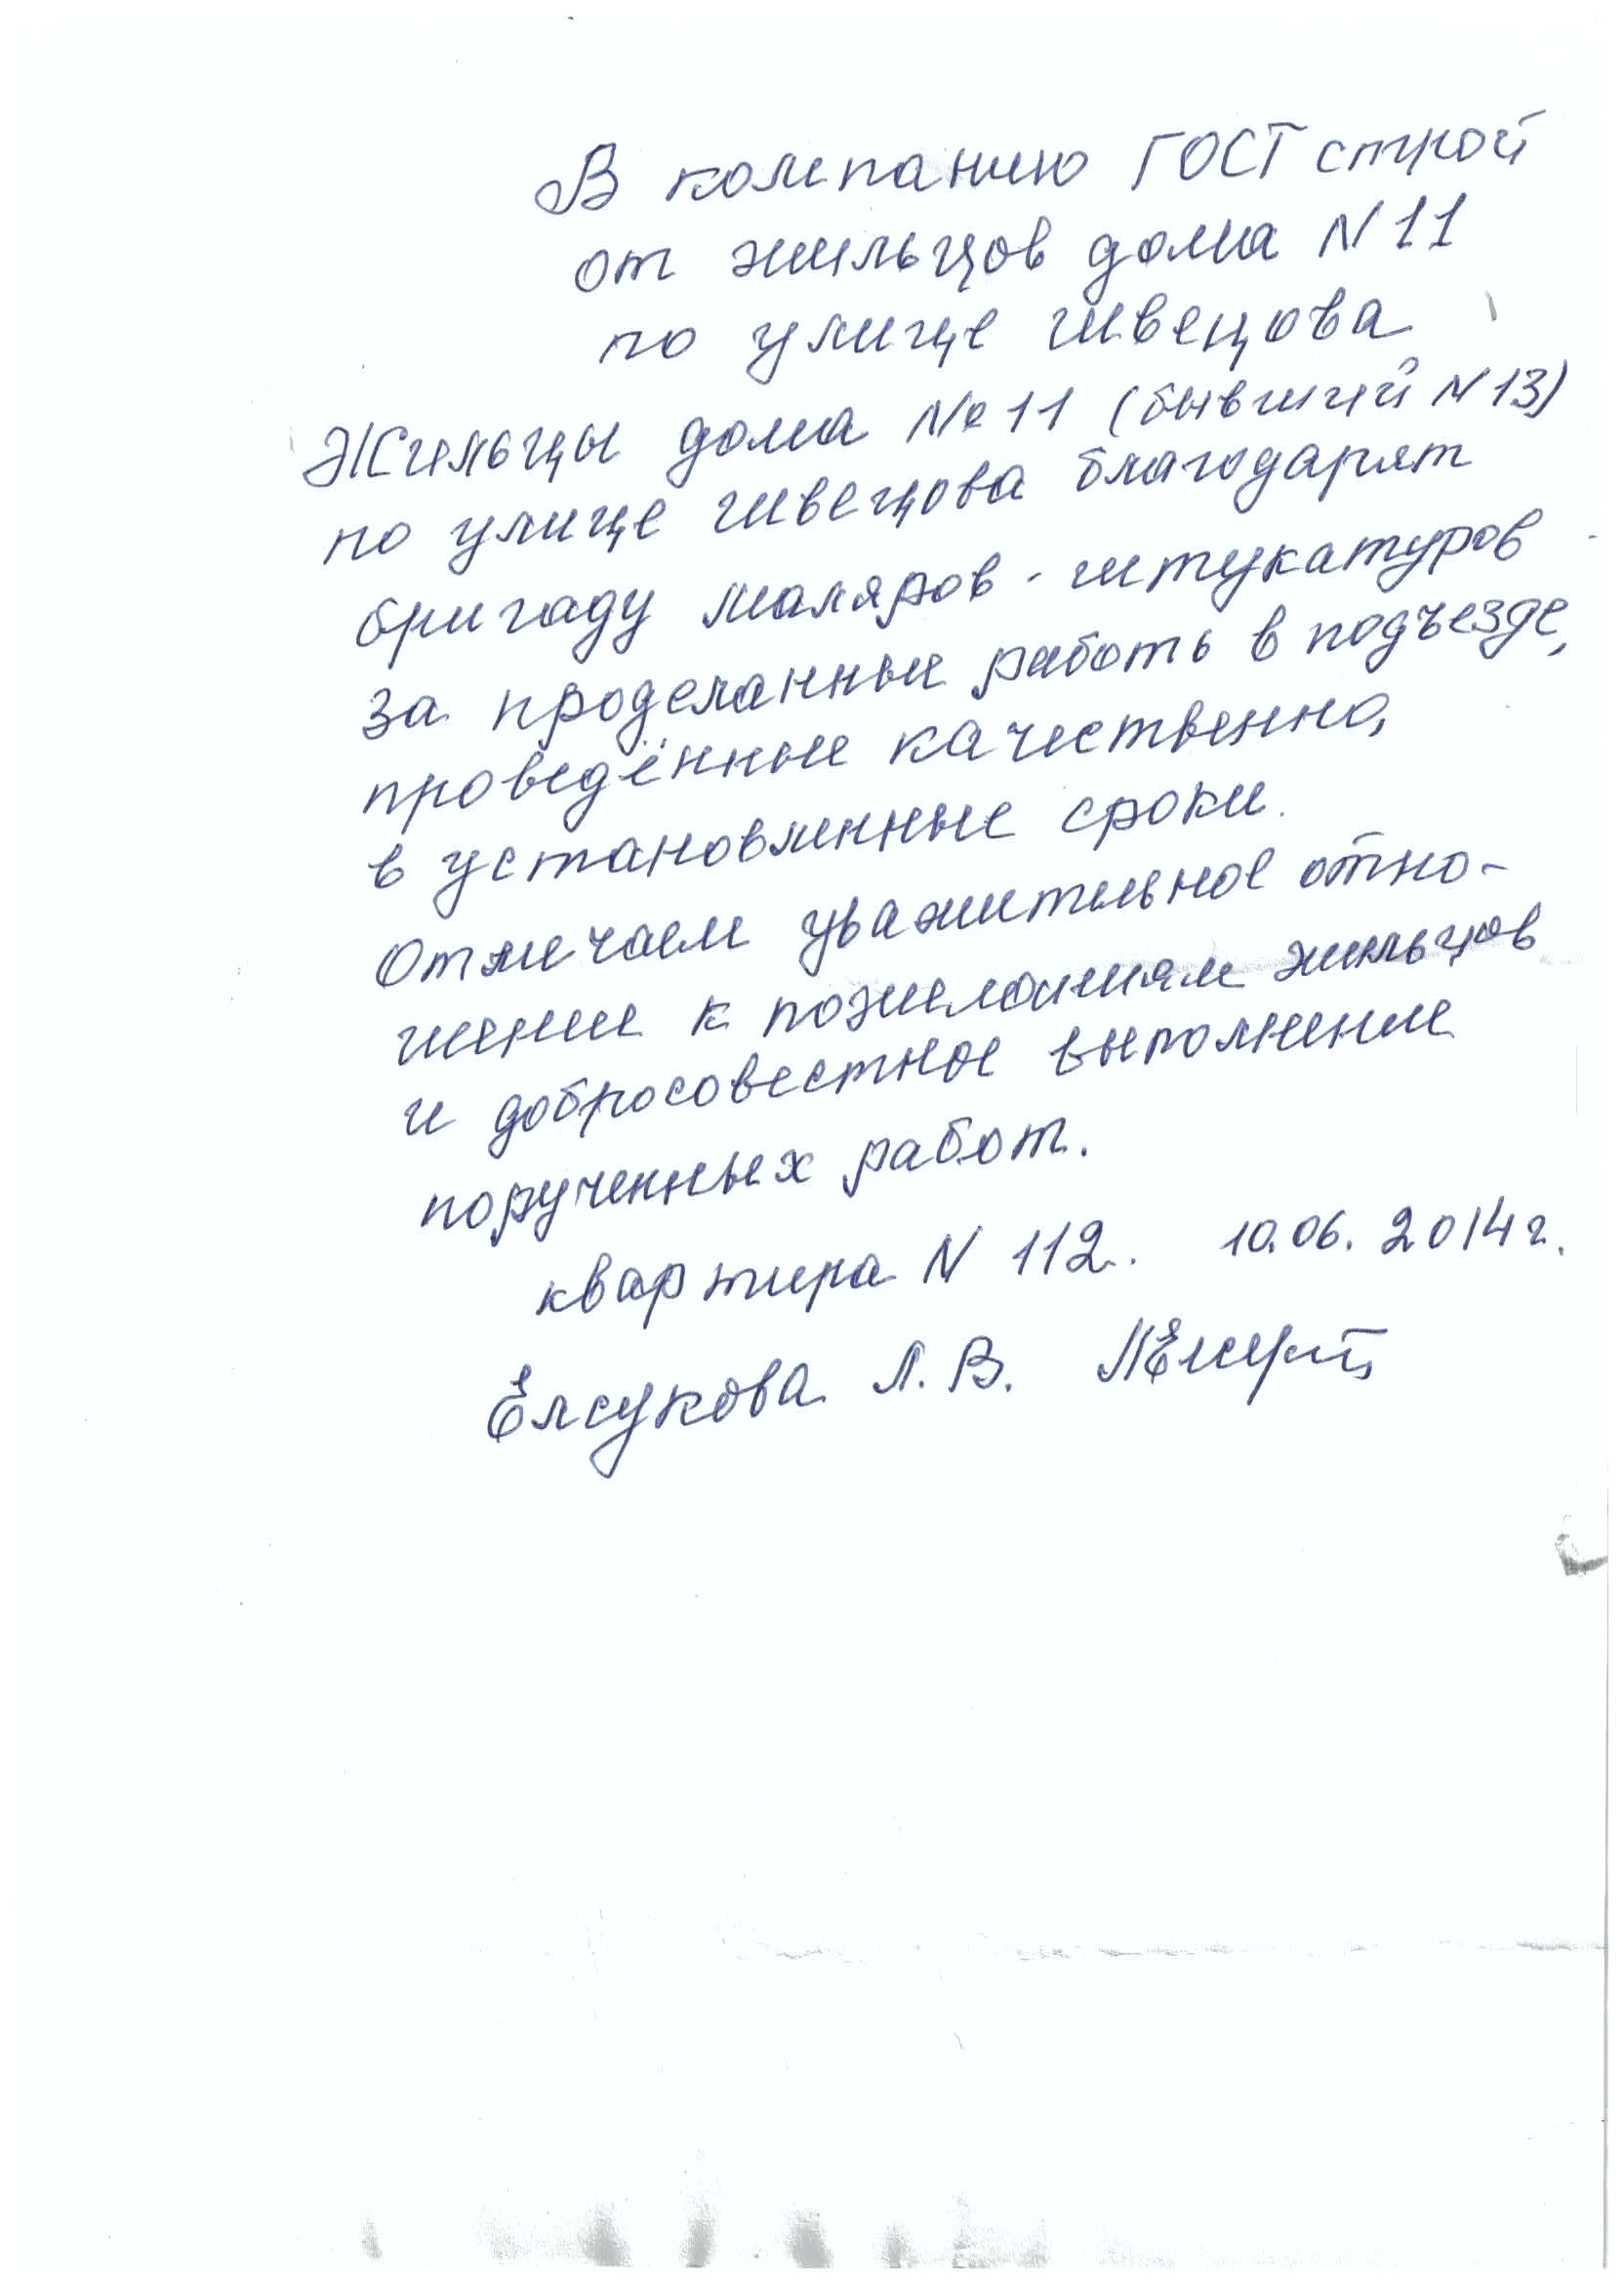 В компанию ГОСТ строй
от жильцов дома N 11
по улице Швецова
Жильцы дома № 11 (бывший N 13)
по улице Швецова благодарят
бригаду маляров-штукатуров
за проделанные работы в подъезде,
проведённые качественно,
в установленные сроки.
Отмечаем уважительное отно-
шение к пожеланиям жильцов
и добросовестное выполнение
порученных работ.
квартира N 112. 10.06.2014 г.
Елсукова Л. В.